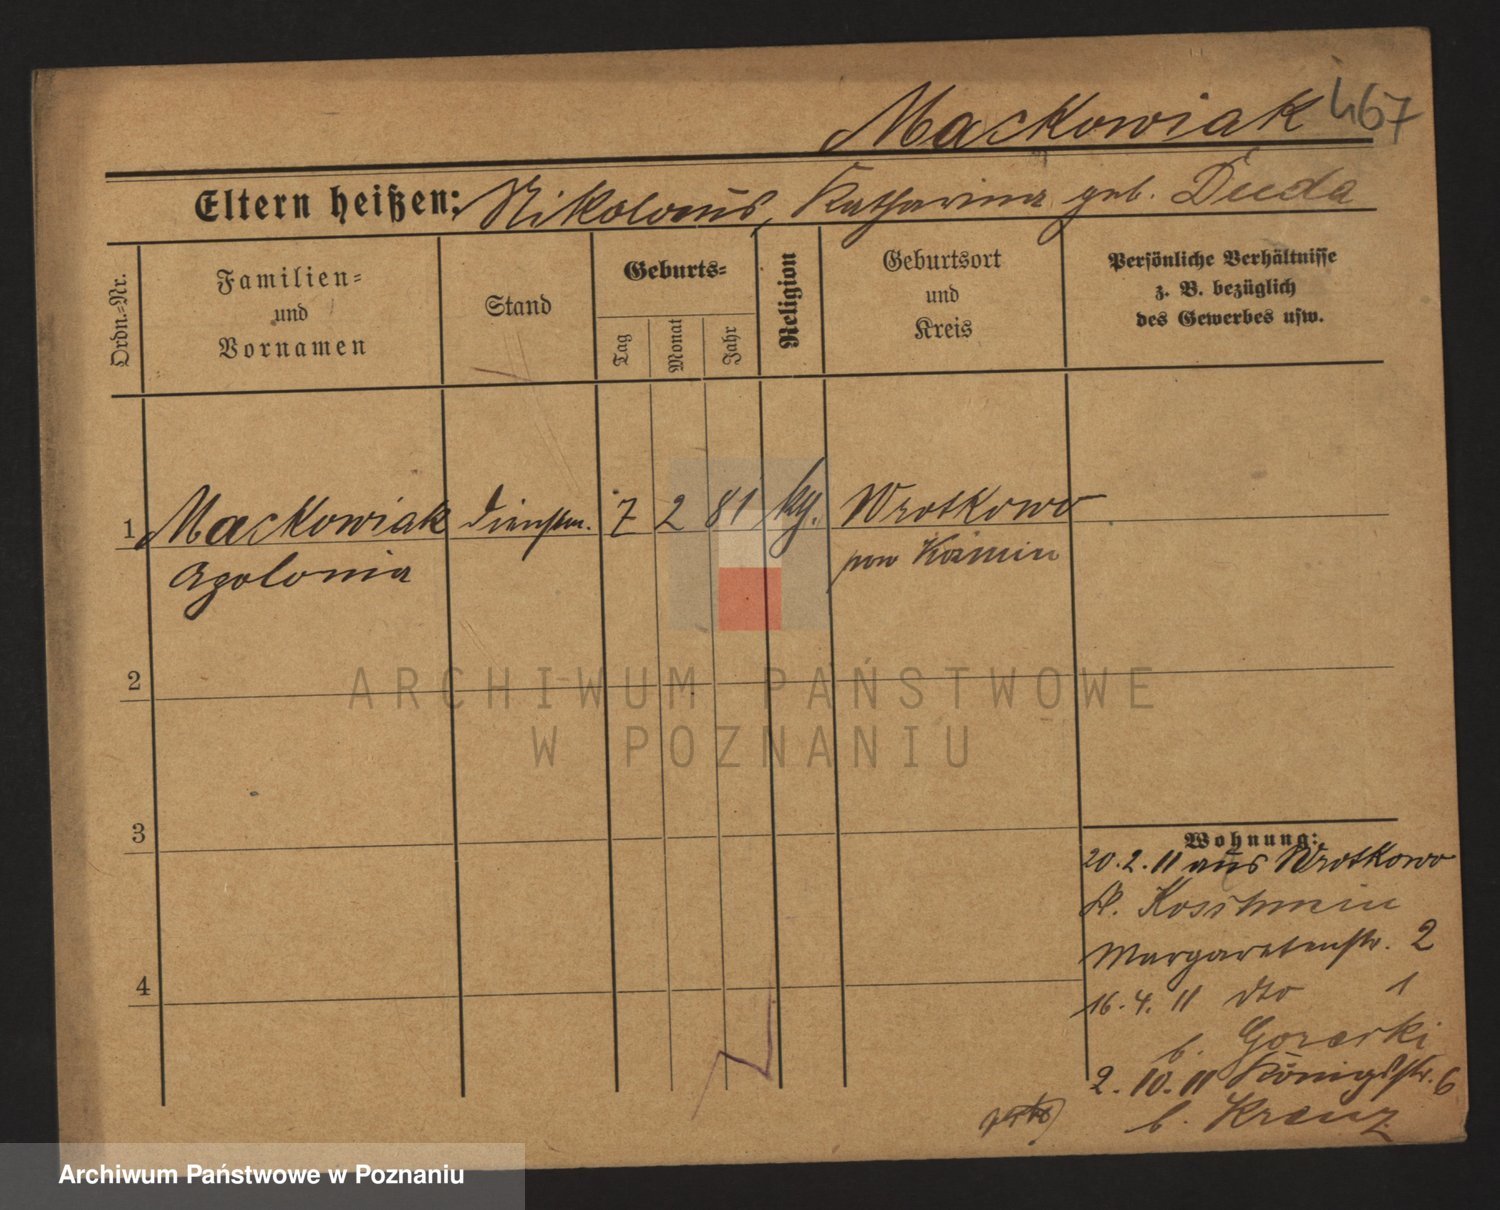 Mackowiak 467
Eltern heißen: Nikolaus, Katharina geb. Duda
Ordn.-Nr.
Familien-
und
Vornamen
Stand
Geburts-
Tag
Monat
Jahr
Religion
Geburtsort
und
Kreis
Persönliche Verhältnisse
z. B. bezüglich
des Gewerbes usw.
1 Mackowiak Dienstm. 7 2 81 kg. Wrotkowo
Apolonia pow Koźmin
2
3
4
Wohnung:
20.2.11 aus Wrotkowo
K. Koschmin
Margaretenstr. 2
16.4.11 dto 1
b. Gorecki
2.10.11 Königstr. 6
b. Krenz
ARCHIWUM PAŃSTWOWE
W POZNANIU
Archiwum Państwowe w Poznaniu